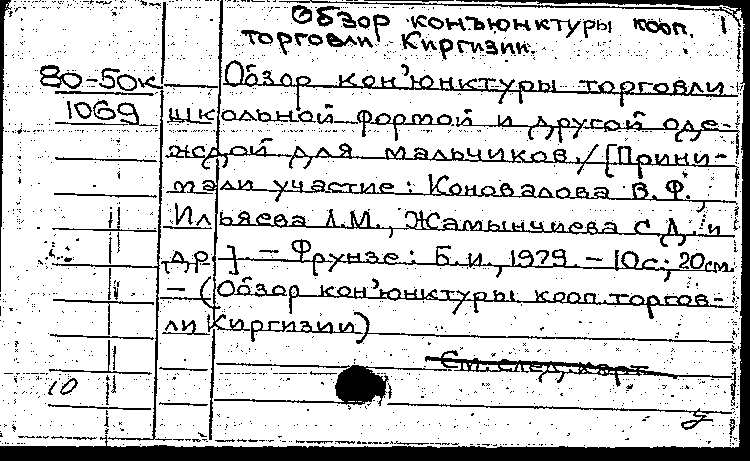 Обзор конъюнктуры кооп. 1
торговли Киргизии.
80-50к Обзор кон'юнктуры торговли
1069 школьной формой и другой оде-
ждой для мальчиков. / [Прини-
мали участие: Коновалова В.Ф.,
Ильяева Л.М., Жамынчиева С.Д. и
др.] - Фрунзе: Б.и., 1979. - 10с; 20см.
- (Обзор кон'юнктуры кооп. торгов-
ли Киргизии)
См. след. карт
10